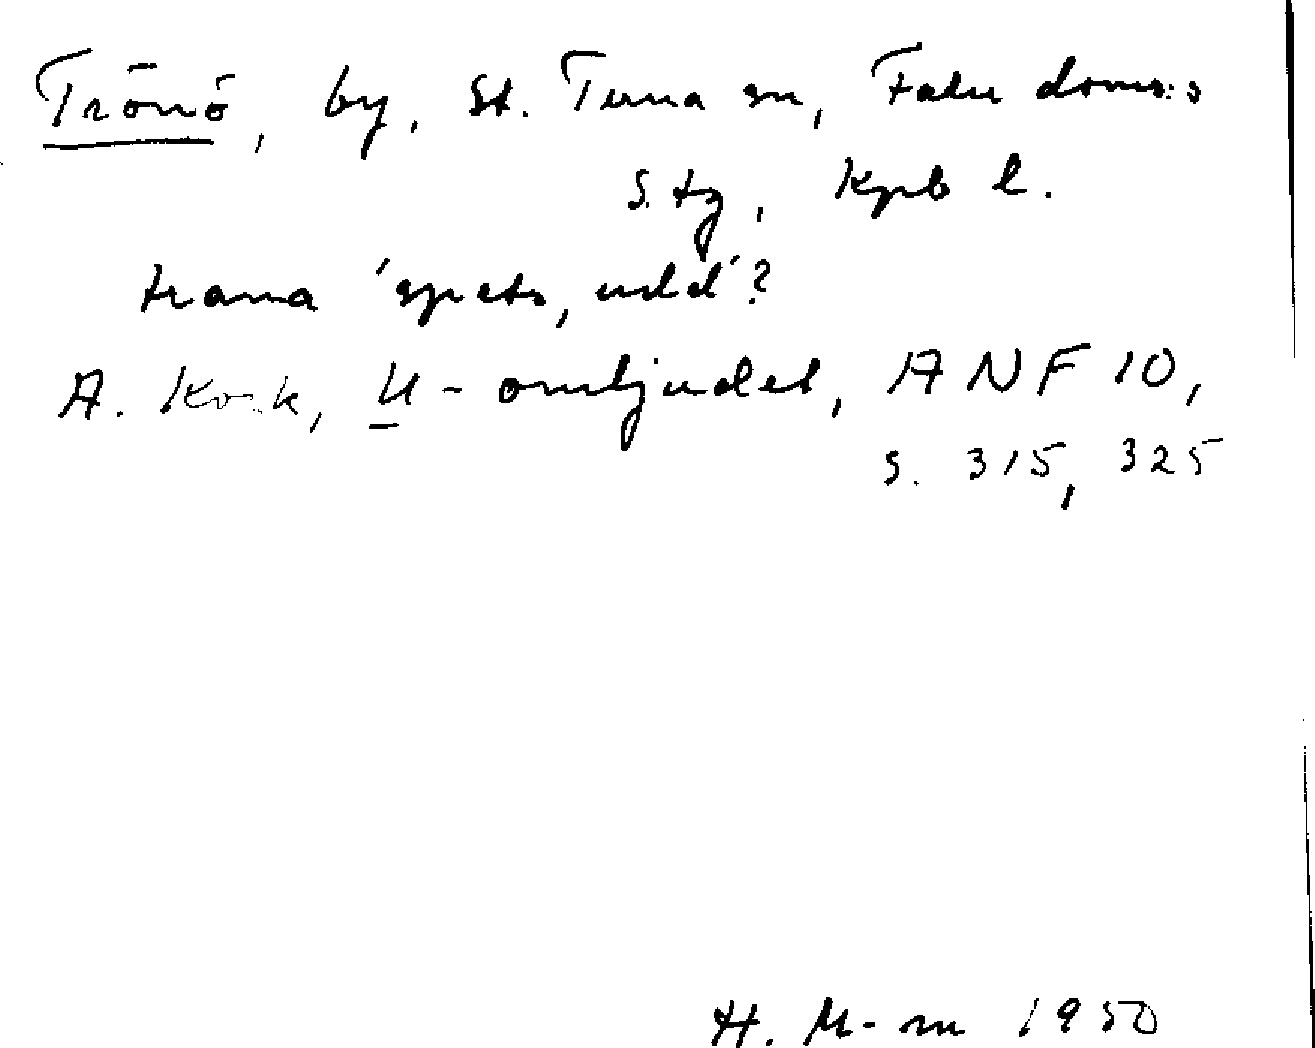 Trönö, by, St. Tuna sn, Falu doms:s
s. tg, Kpb l.
trana 'spets, udd'?
A. Kock, U-omljudet, ANF 10,
s. 315, 325
H. M-m 1950